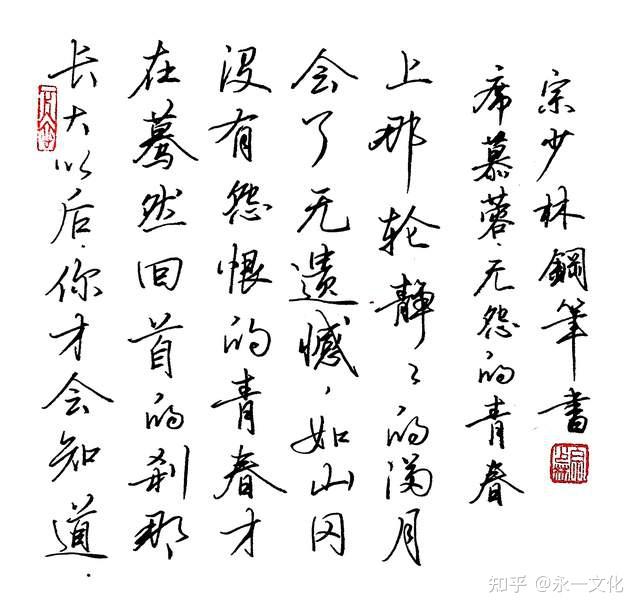 长大以后.你才会知道.
在蓦然回首的刹那
没有怨恨的青春才
会了无遗憾,如山冈
上那轮静々的满月
席慕蓉.无怨的青春
宗少林鋼筆書
知乎 @永一文化